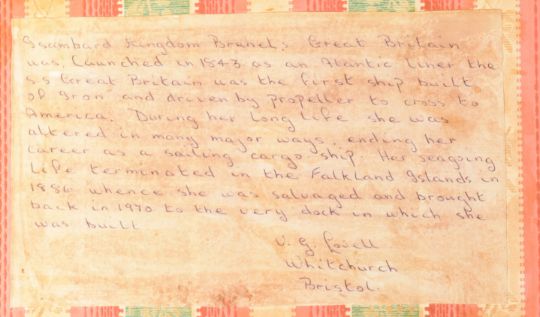 Isambard Kingdom Brunel's Great Britain
was launched in 1843 as an Atlantic liner the
s.s Great Britain was the first ship built
of iron and driven by propeller to cross to
America. During her long life she was
altered in many major ways, ending her
career as a sailing cargo ship. Her seagoing
life terminated in the Falkland Islands in
1886 whence she was salvaged and brought
back in 1970 to the very dock in which she
was built
V. G. Lovell
Whitchurch
Bristol.